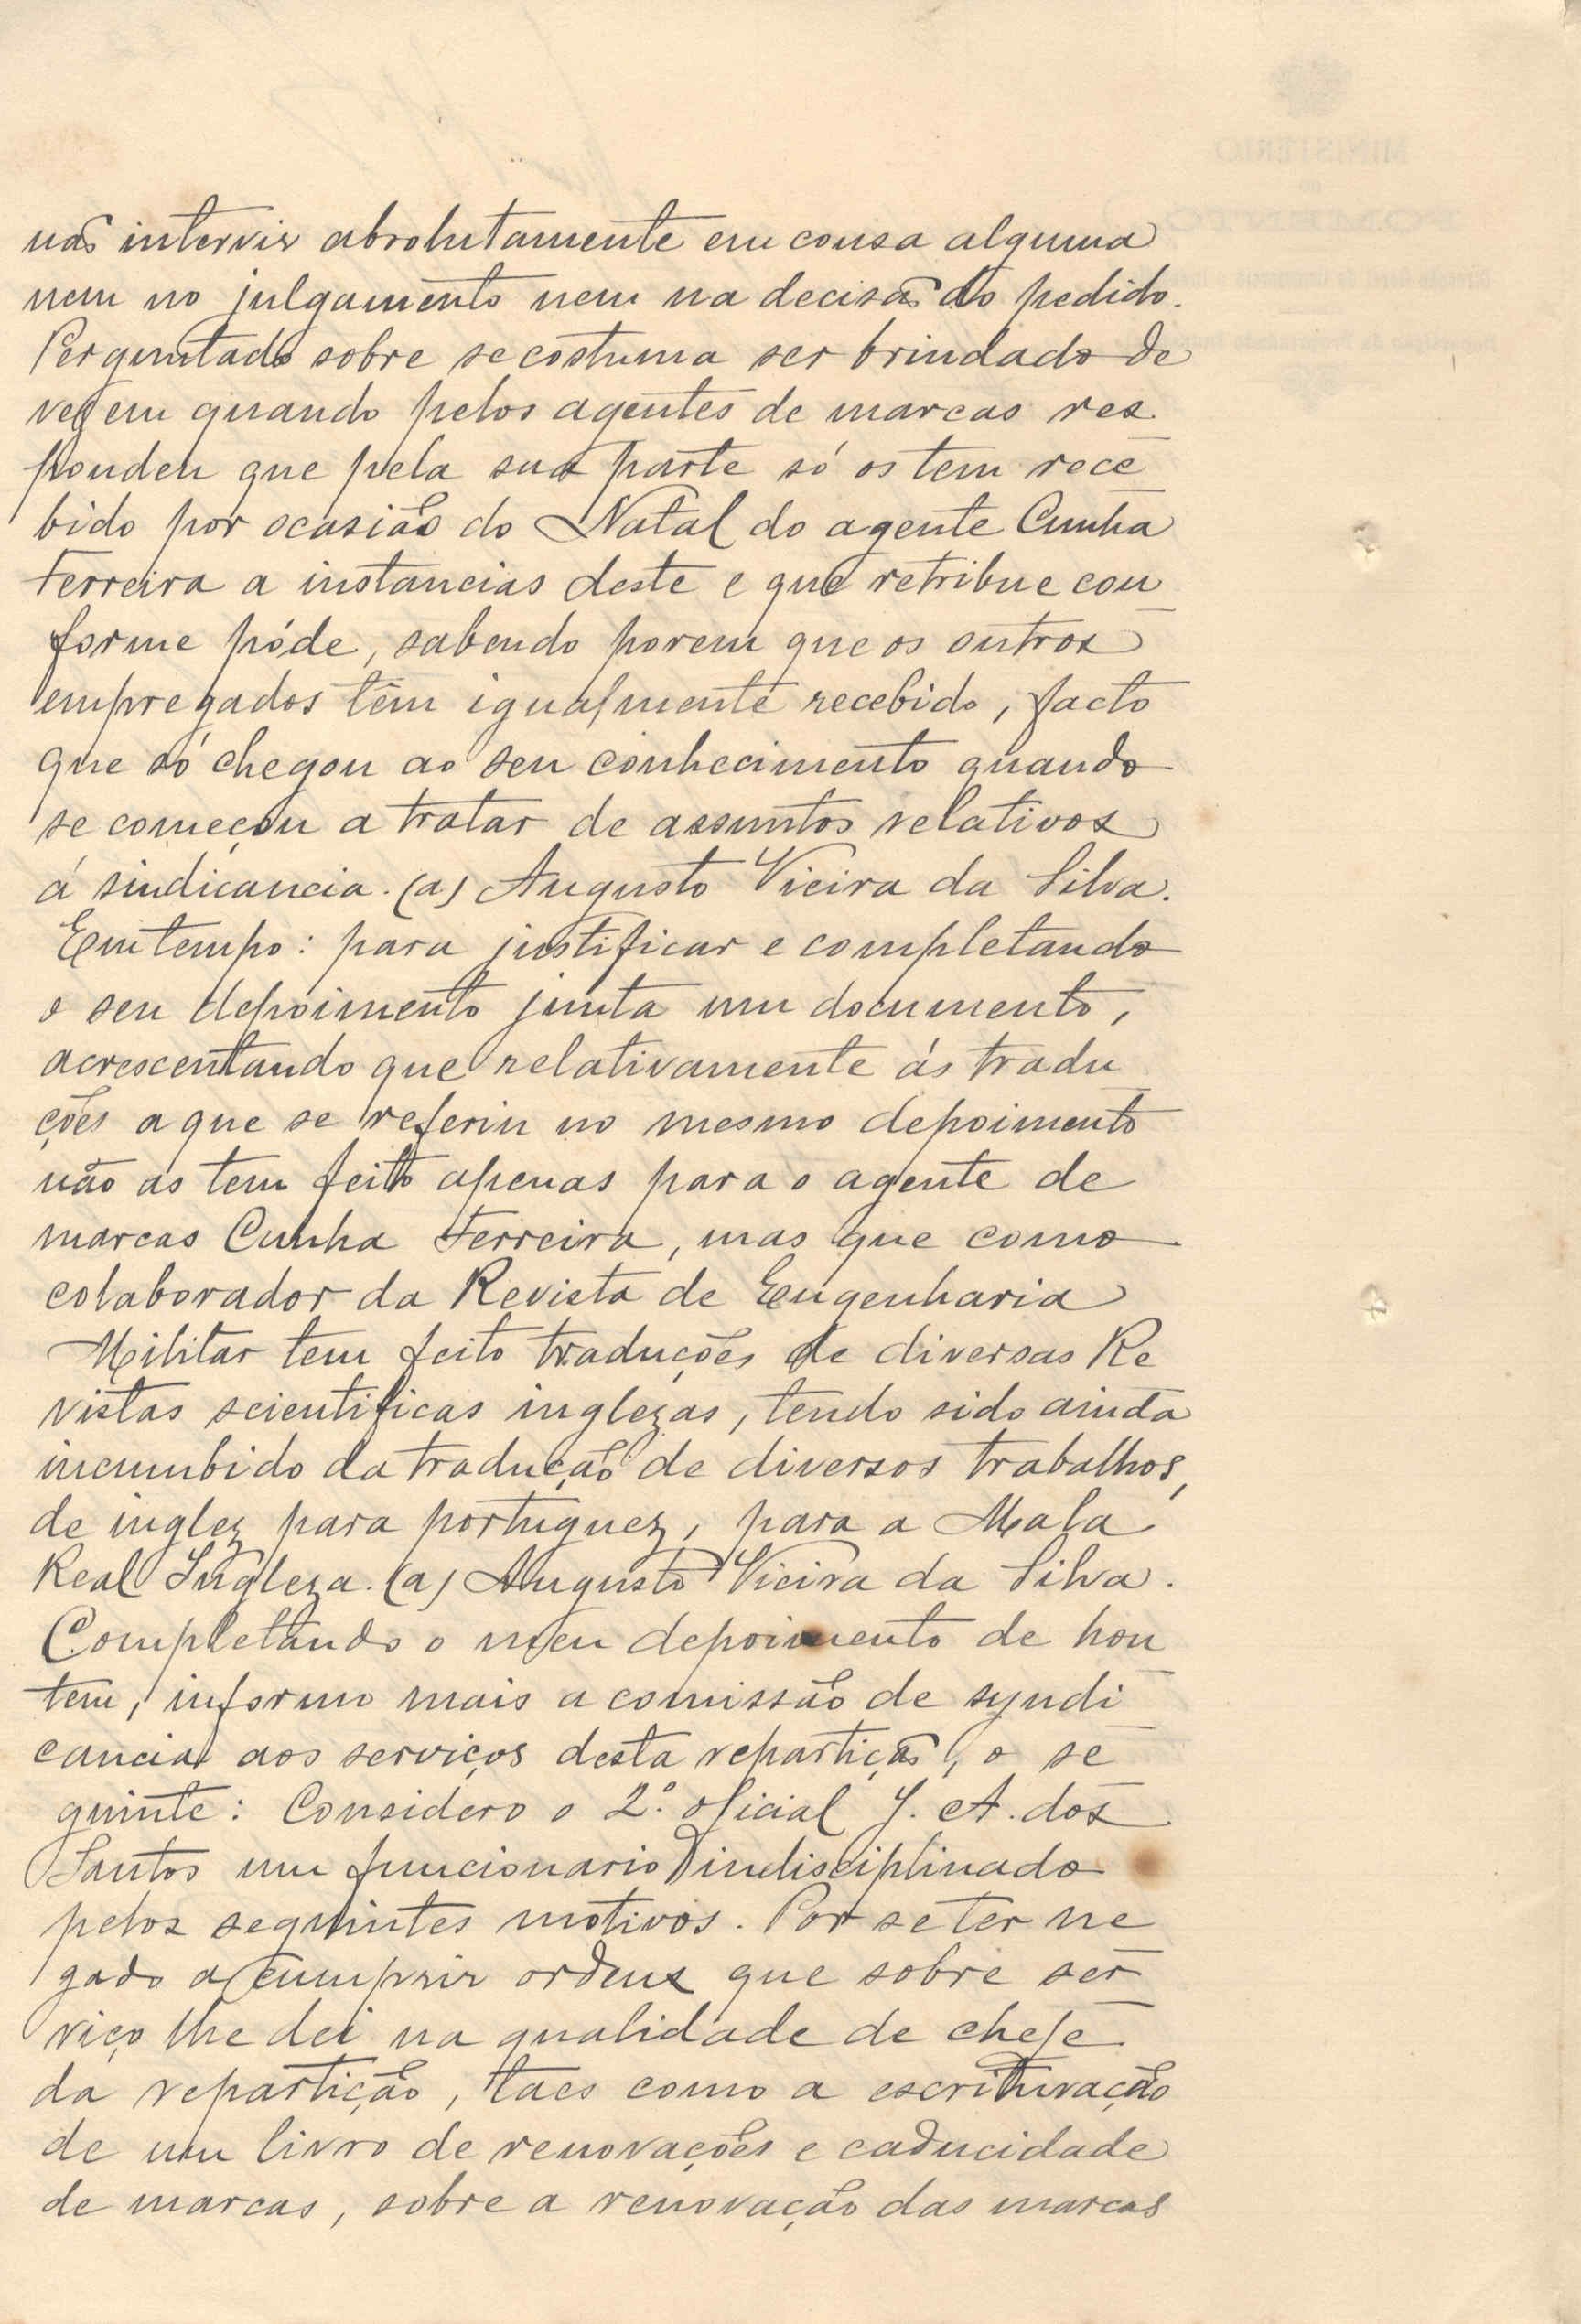 não intervir absolutamente em cousa alguma
nem no julgamento nem na decisão do pedido.
Perguntado sobre se costuma ser brindado de
vez em quando pelos agentes de marcas res
pondeu que pela sua parte só os tem rece
bido por ocasião do Natal do agente Cunha
Ferreira a instancias deste e que retribue con
forme póde, sabendo porem que os outros
empregados têm igualmente recebido, facto
que só chegou ao seu conhecimento quando
se começou a tratar de assuntos relativos
á sindicancia. (a) Augusto Vieira da Silva.
Em tempo: para justificar e completando
o seu depoimento junta um documento,
acrescentando que relativamente ás tradu
ções a que se referiu no mesmo depoimento
não as tem feito apenas para o agente de
marcas Cunha Ferreira, mas que como
colaborador da Revista de Engenharia
Militar tem feito traduções de diversas Re
vistas scientificas inglezas, tendo sido ainda
incumbido da tradução de diversos trabalhos,
de inglez para portuguez, para a Mala
Real Ingleza. (a) Augusto Vieira da Silva.
Completando o meu depoimento de hon
tem, informo mais a comissão de syndi
cancia aos serviços desta repartição, o se
guinte: Considero o 2.º oficial J. A. dos
Santos um funcionario indisciplinado
pelos seguintes motivos. Por se ter ne
gado a cumprir ordens que sobre ser
viço lhe dei na qualidade de chefe
da repartição, taes como a escrituração
de um livro de renovações e caducidade
de marcas, sobre a renovação das marcas